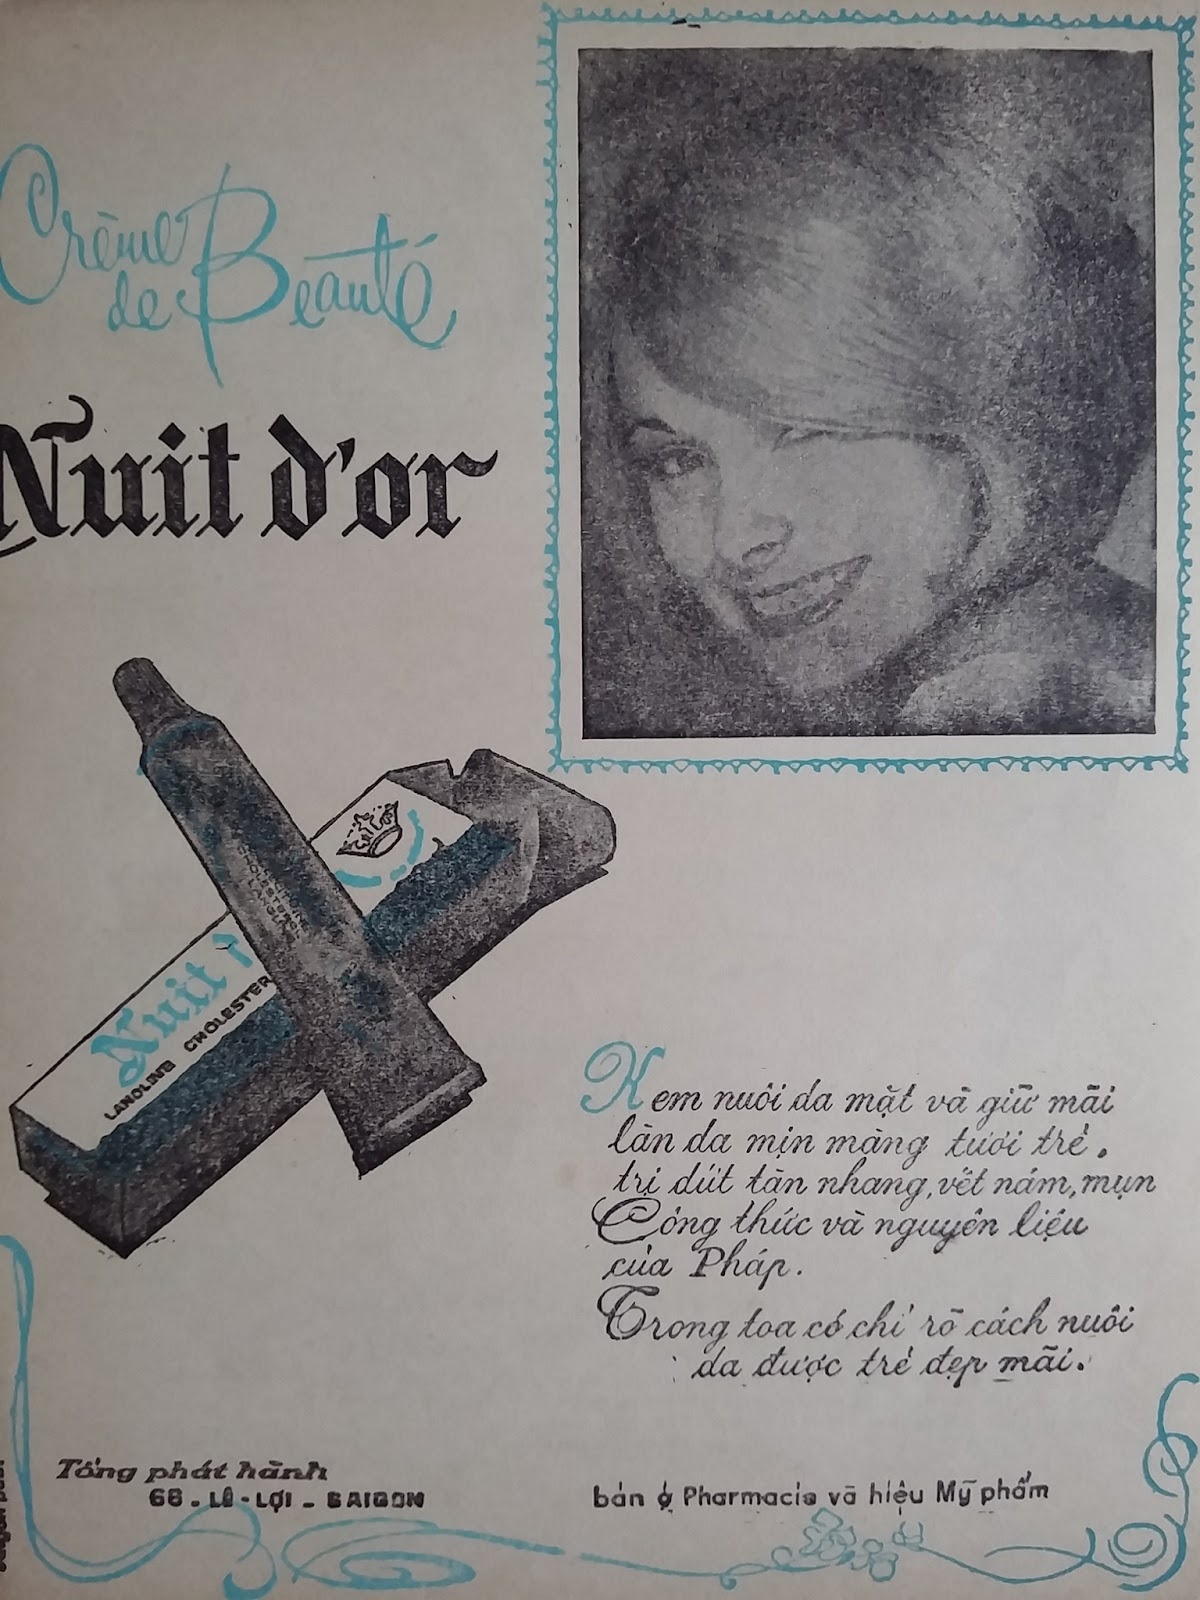 Crème
de Beauté
Nuit d'or
LANOLINE CHOLESTER
Nuit d
Kem nuôi da mặt và giữ mãi
làn da mịn màng tươi trẻ.
trị dứt tàn nhang, vết nám, mụn
Công thức và nguyên liệu
của Pháp.
Trong toa có chỉ rõ cách nuôi
da được trẻ đẹp mãi.
Tổng phát hành
68 - LÊ-LỢI - SAIGON
bán ở Pharmacie và hiệu Mỹ phẩm